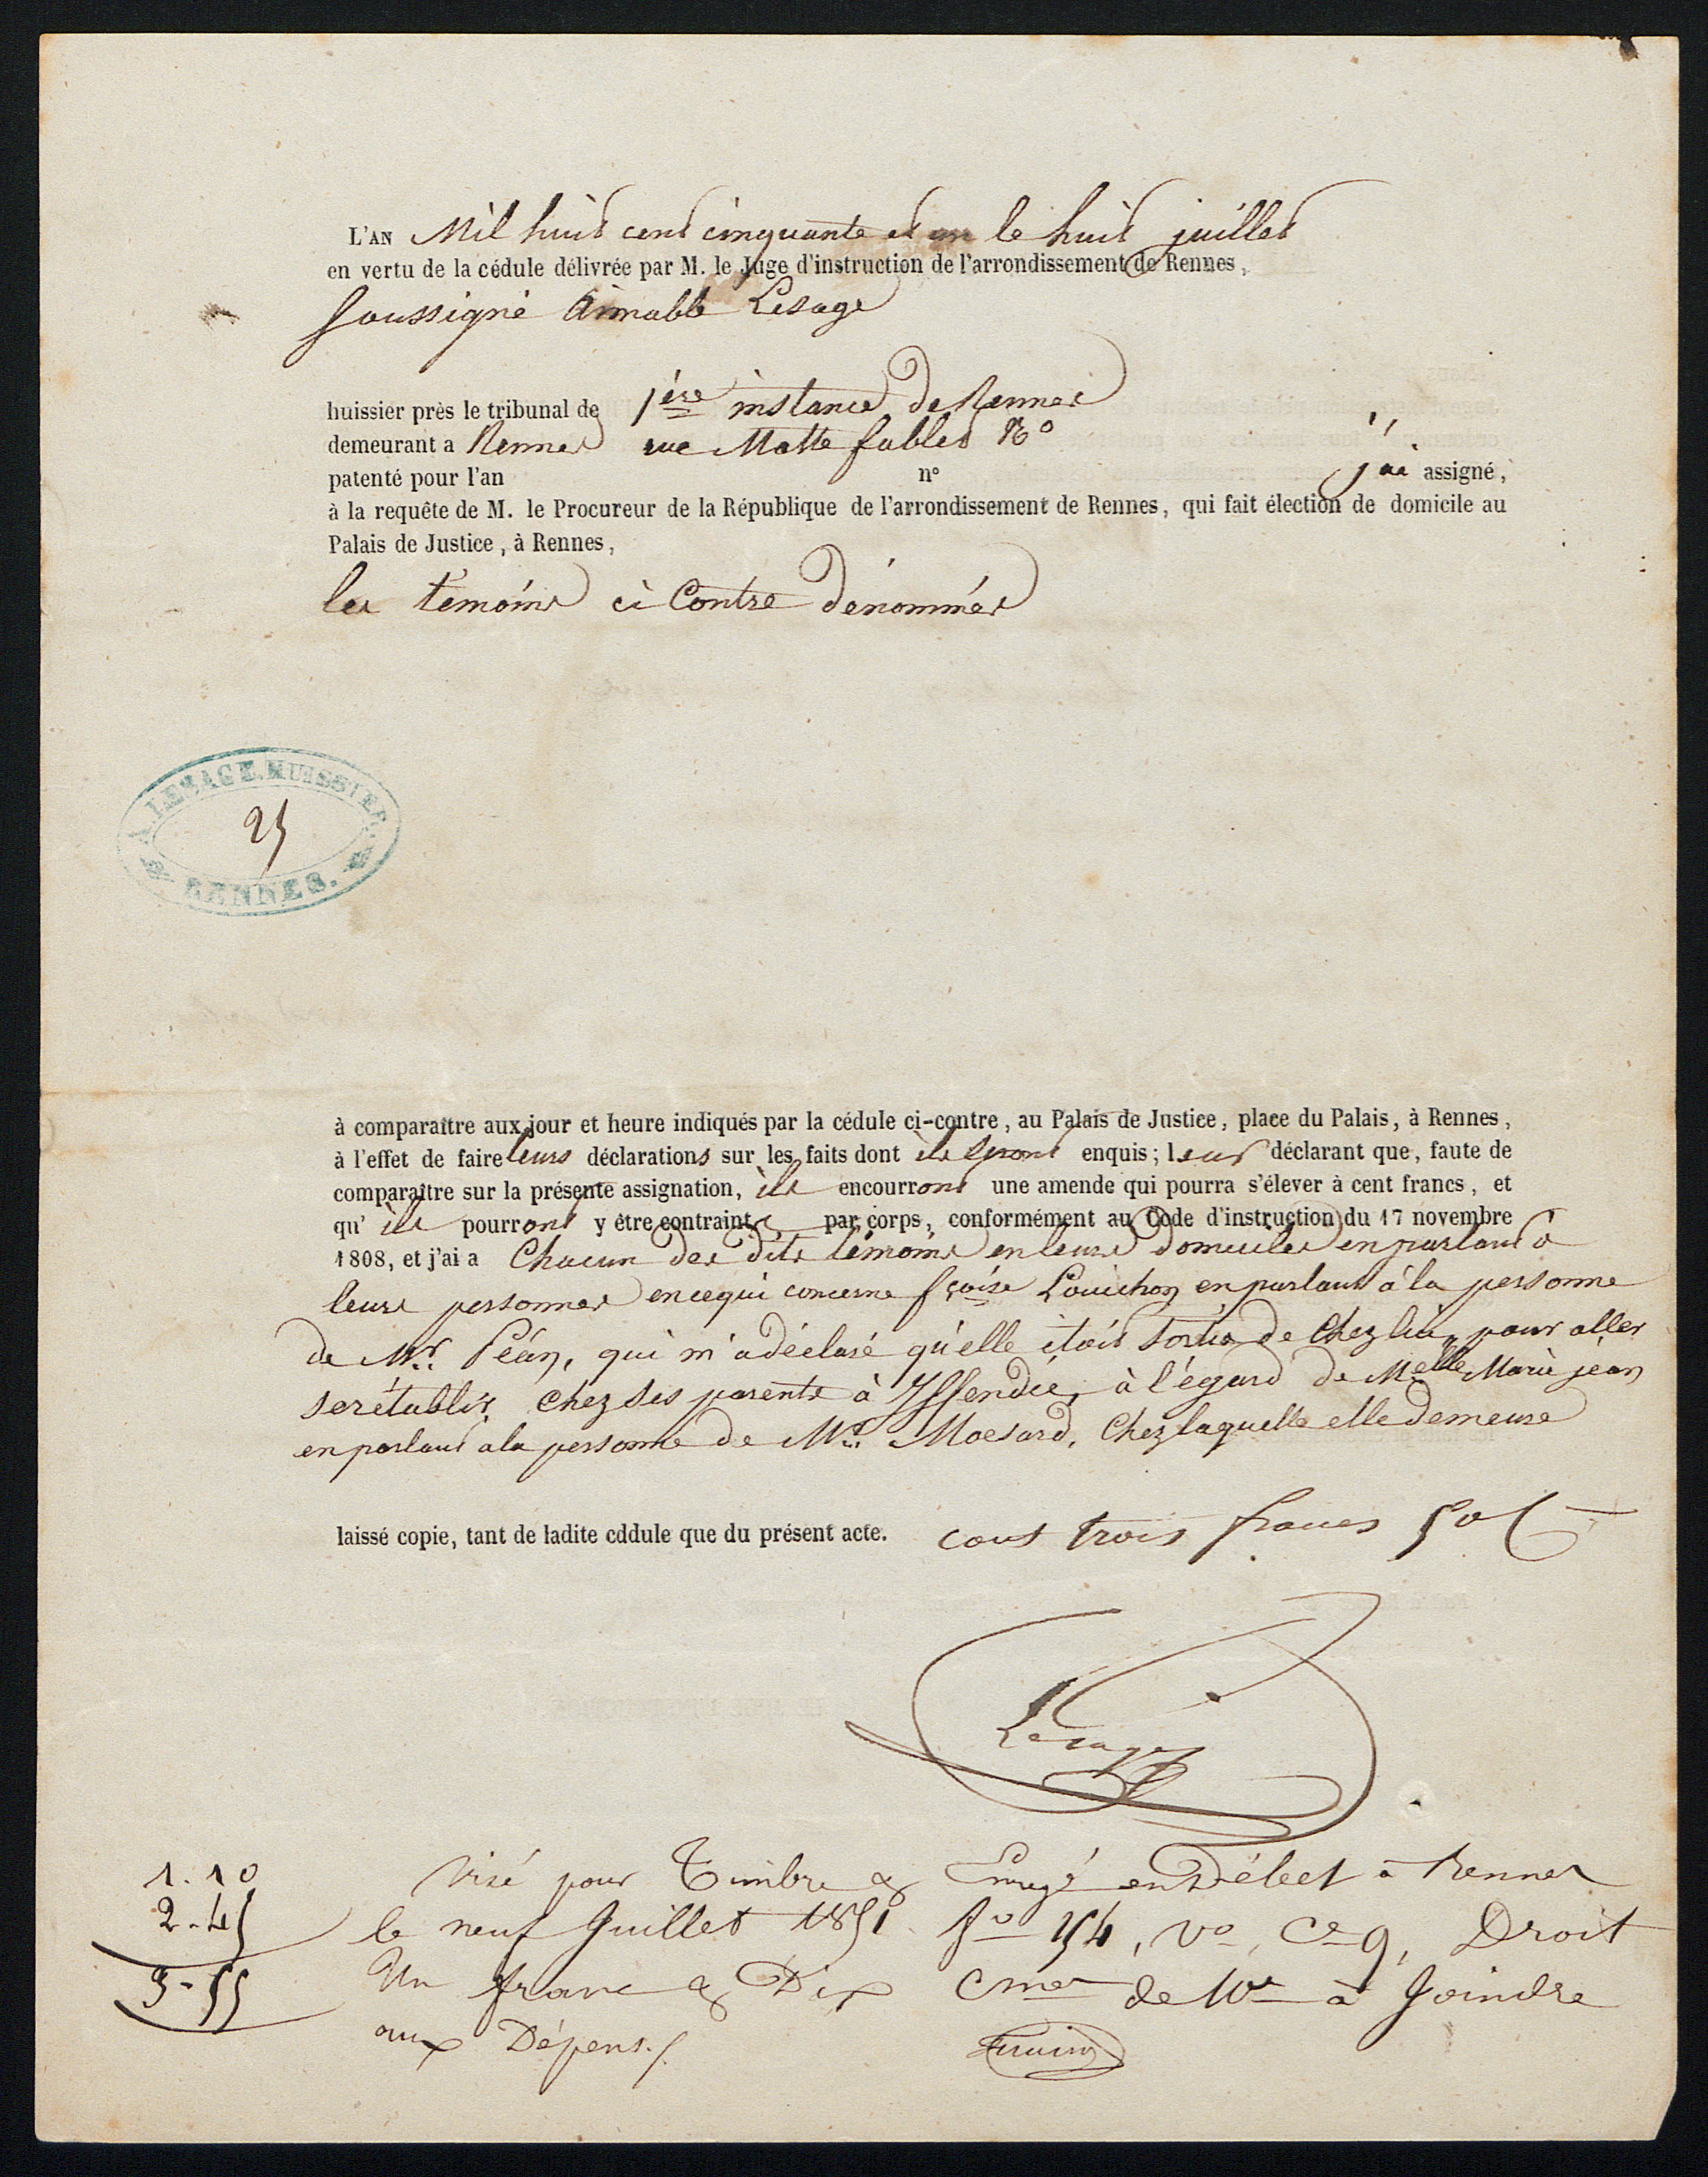 L'AN Mil huit cent cinquante et un le huit juillet
en vertu de la cédule délivrée par M. le Juge d'instruction de l'arrondissement de Rennes,
soussigné Aimable Lesage
huissier près le tribunal de 1ère instance de Rennes
demeurant a Rennes rue Motte fablet No
patenté pour l'an n° j'ai assigné,
à la requête de M. le Procureur de la République de l'arrondissement de Rennes, qui fait élection de domicile au
Palais de Justice, à Rennes,
les témoins ci Contre dénommés
A. LESAGE. HUISSIER.
25
RENNES.
à comparaître aux jour et heure indiqués par la cédule ci-contre, au Palais de Justice, place du Palais, à Rennes,
à l'effet de faire leurs déclarations sur les faits dont ils seront enquis; leur déclarant que, faute de
comparaître sur la présente assignation, ils encourront une amende qui pourra s'élever à cent francs, et
qu' ils pourront y être contraints par corps, conformément au Code d'instruction du 17 novembre
1808, et j'ai a Chacun des dits témoins en leurs domiciles en parlant à
leurs personnes en ce qui concerne fçoise Louichon en parlant à la personne
de Mr. Péan, qui m'a déclaré qu'elle étoit sortie de Chez lui pour aller
se rétablir chez ses parents à Iffendic, à l'égard de Melle Marie jean
en parlant a la personne de Moesard, Chez laquelle elle demeure
laissé copie, tant de ladite cddule que du présent acte. cout trois francs 50 C
Lesage
1.10
2-45
3-55
Visé pour Timbre & Enregé en Débet à Rennes
le neuf Juillet 1851 fo 154, Vo, Ce 9, Droit
Un franc & Dix Cmes de 10e à Joindre
aux Dépens./.